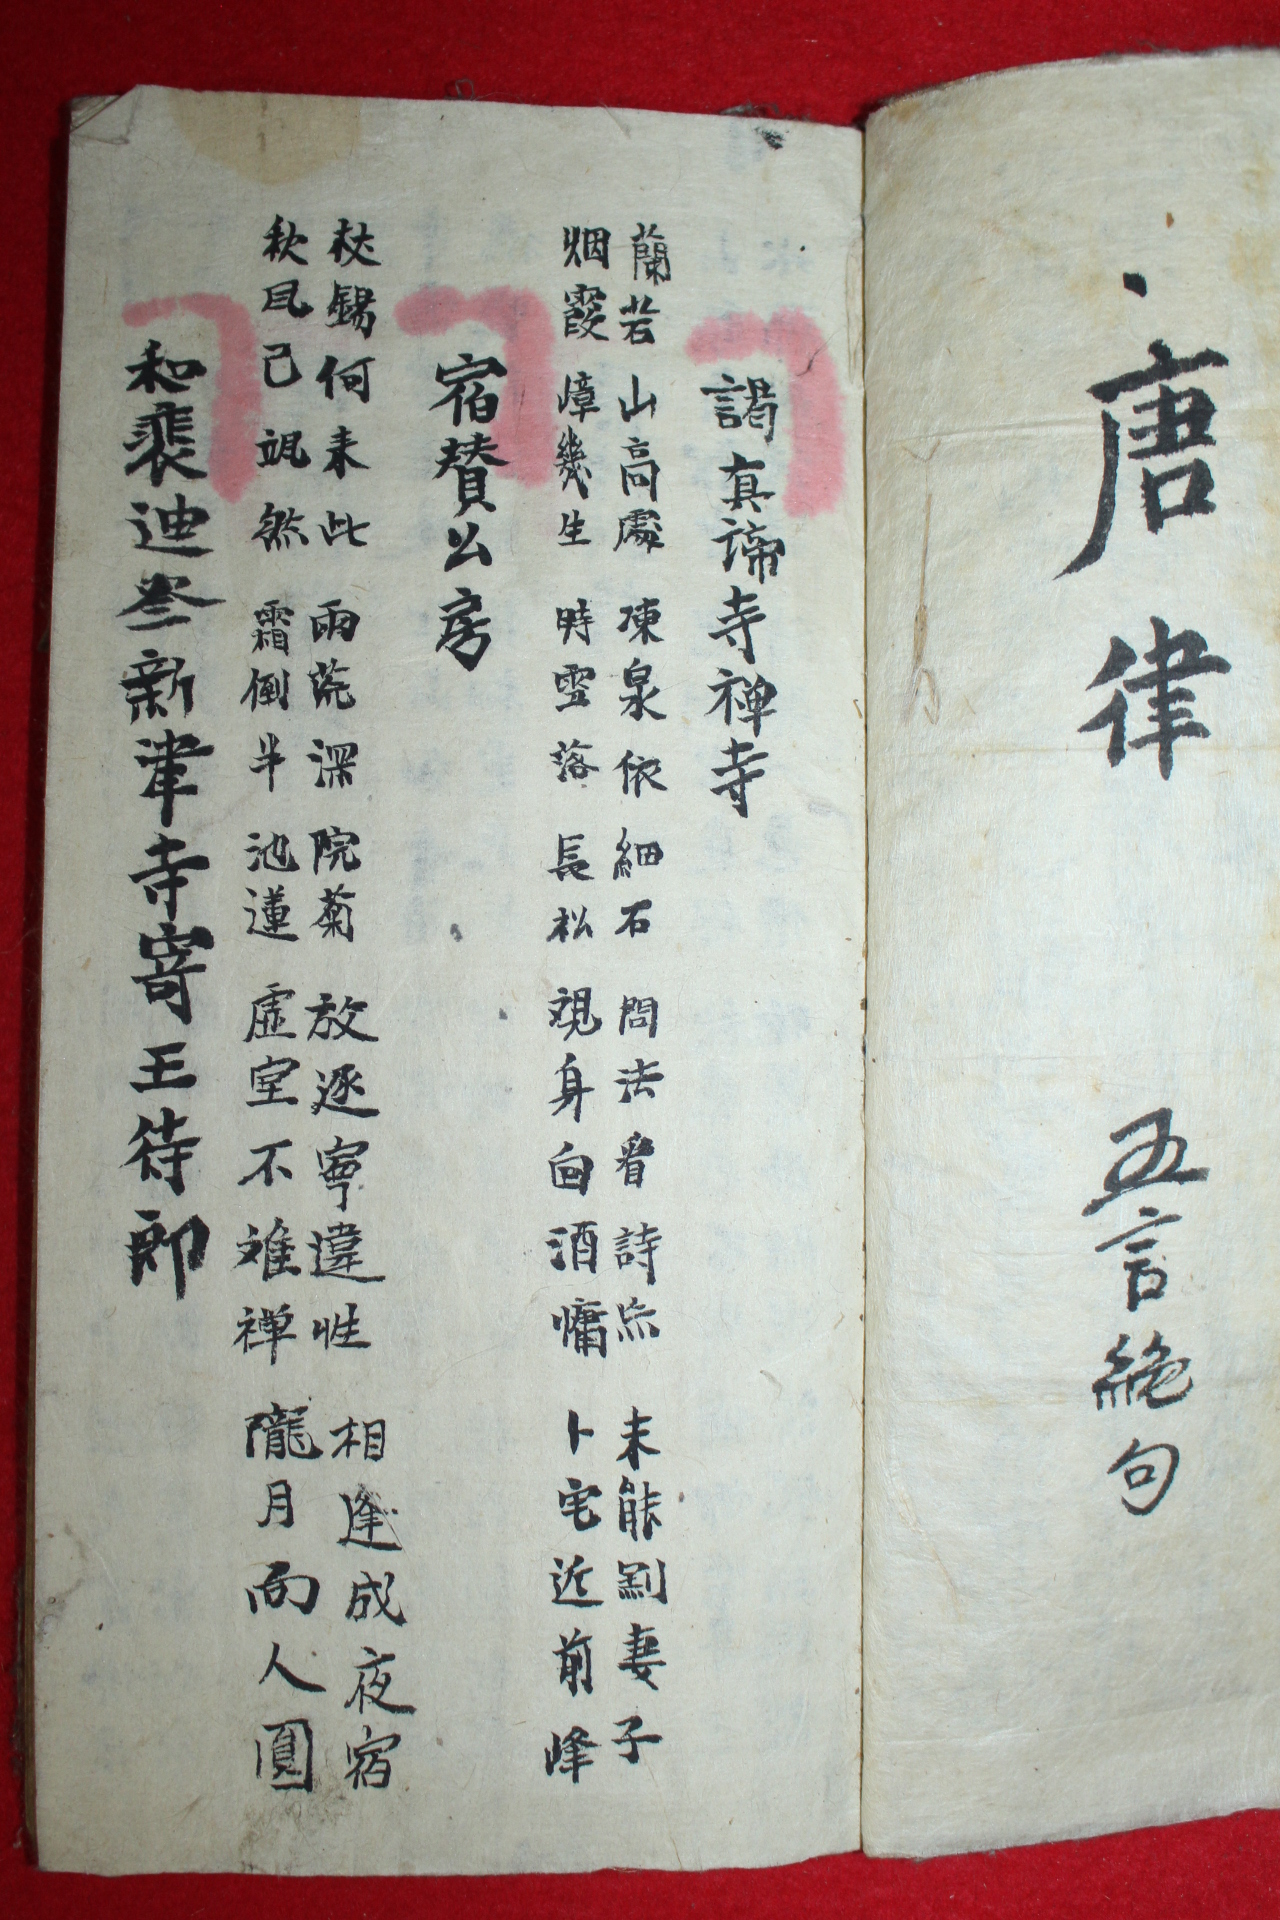 唐律 五言絶句
謁真諦寺禅寺
蘭若山高處 凍泉依細石 問法看詩忘 未能割妻子
烟霞嶂幾生 時雪落長松 視身向酒慵 卜宅近前峰
宿賛公房
杖錫何来此 雨荒深院菊 放逐寧違性 相逢成夜宿
秋風已颯然 霜倒半池蓮 虛室不难禅 隴月向人圓
和裴迪登新津寺寄王待郎